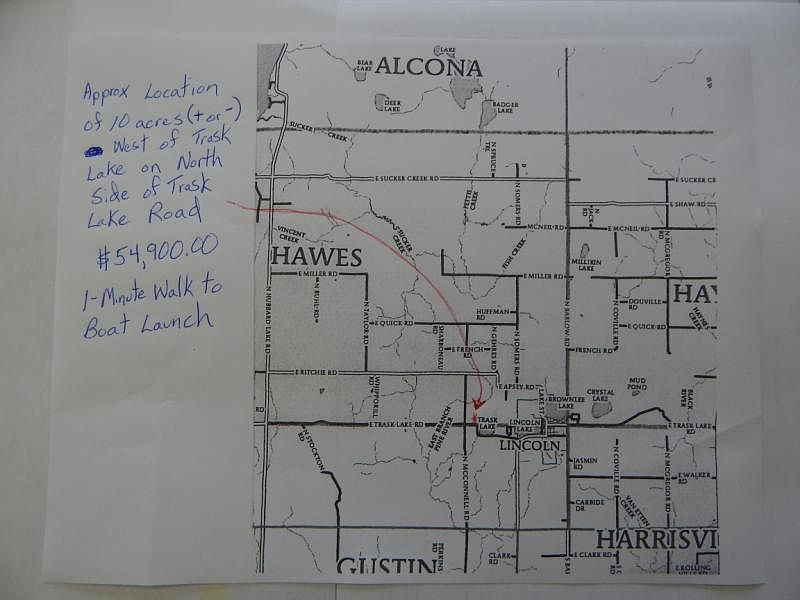 Approx Location
of 10 acres (+ or -)
West of Trask
Lake on North
Side of Trask
Lake Road
$54,900.00
1-Minute Walk to
Boat Launch
LAKE
BEAR
LAKE
ALCONA
DEER
LAKE
BADGER
LAKE
SUCKER CREEK
N SPRUCE
TRL
E SUCKER CREEK RD
E SUCKER CR
FETTE
CREEK
N SOMERS RD
N JACK
RD
E SHAW RD
VINCENT
CREEK
SUCKER
CREEK
MCNEIL RD
E MCNEIL RD
N MCGREGOR
RD
HAWES
FISH CREEK
MILLIKIN
LAKE
E MILLER RD
E MILLER RD
N HUBBARD LAKE RD
N BUHL RD
N TAYLOR RD
HUFFMAN
RD
N BARLOW RD
N COVILLE RD
DOUVILLE
RD
HAY
HAYNES
CREEK
E QUICK RD
E QUICK RD
SHARBONEAU
RD
E FRENCH RD
N GEHRES RD
N SOMERS RD
FRENCH RD
E RITCHIE RD
WHIPPORILL
RD
E APSEY RD
LAKE ST
BROWNLEE
LAKE
CRYSTAL
LAKE
MUD
POND
BLACK
RIVER
RD
E TRASK LAKE RD
TRASK
LAKE
LINCOLN
LAKE
E TRASK LAKE
RD
N STOCKTON
RD
EAST BRANCH
PINE RIVER
LINCOLN
N MCCONNELL RD
JASMIN
RD
N COVILLE RD
N MCGREGOR RD
E WALKER
RD
CARBIDE
DR
VAN ETTEN
CREEK
HARRISVI
PERKINS
RD
GUSTIN
CLARK
RD
S BAR
E CLARK RD
S C
E ROLLING